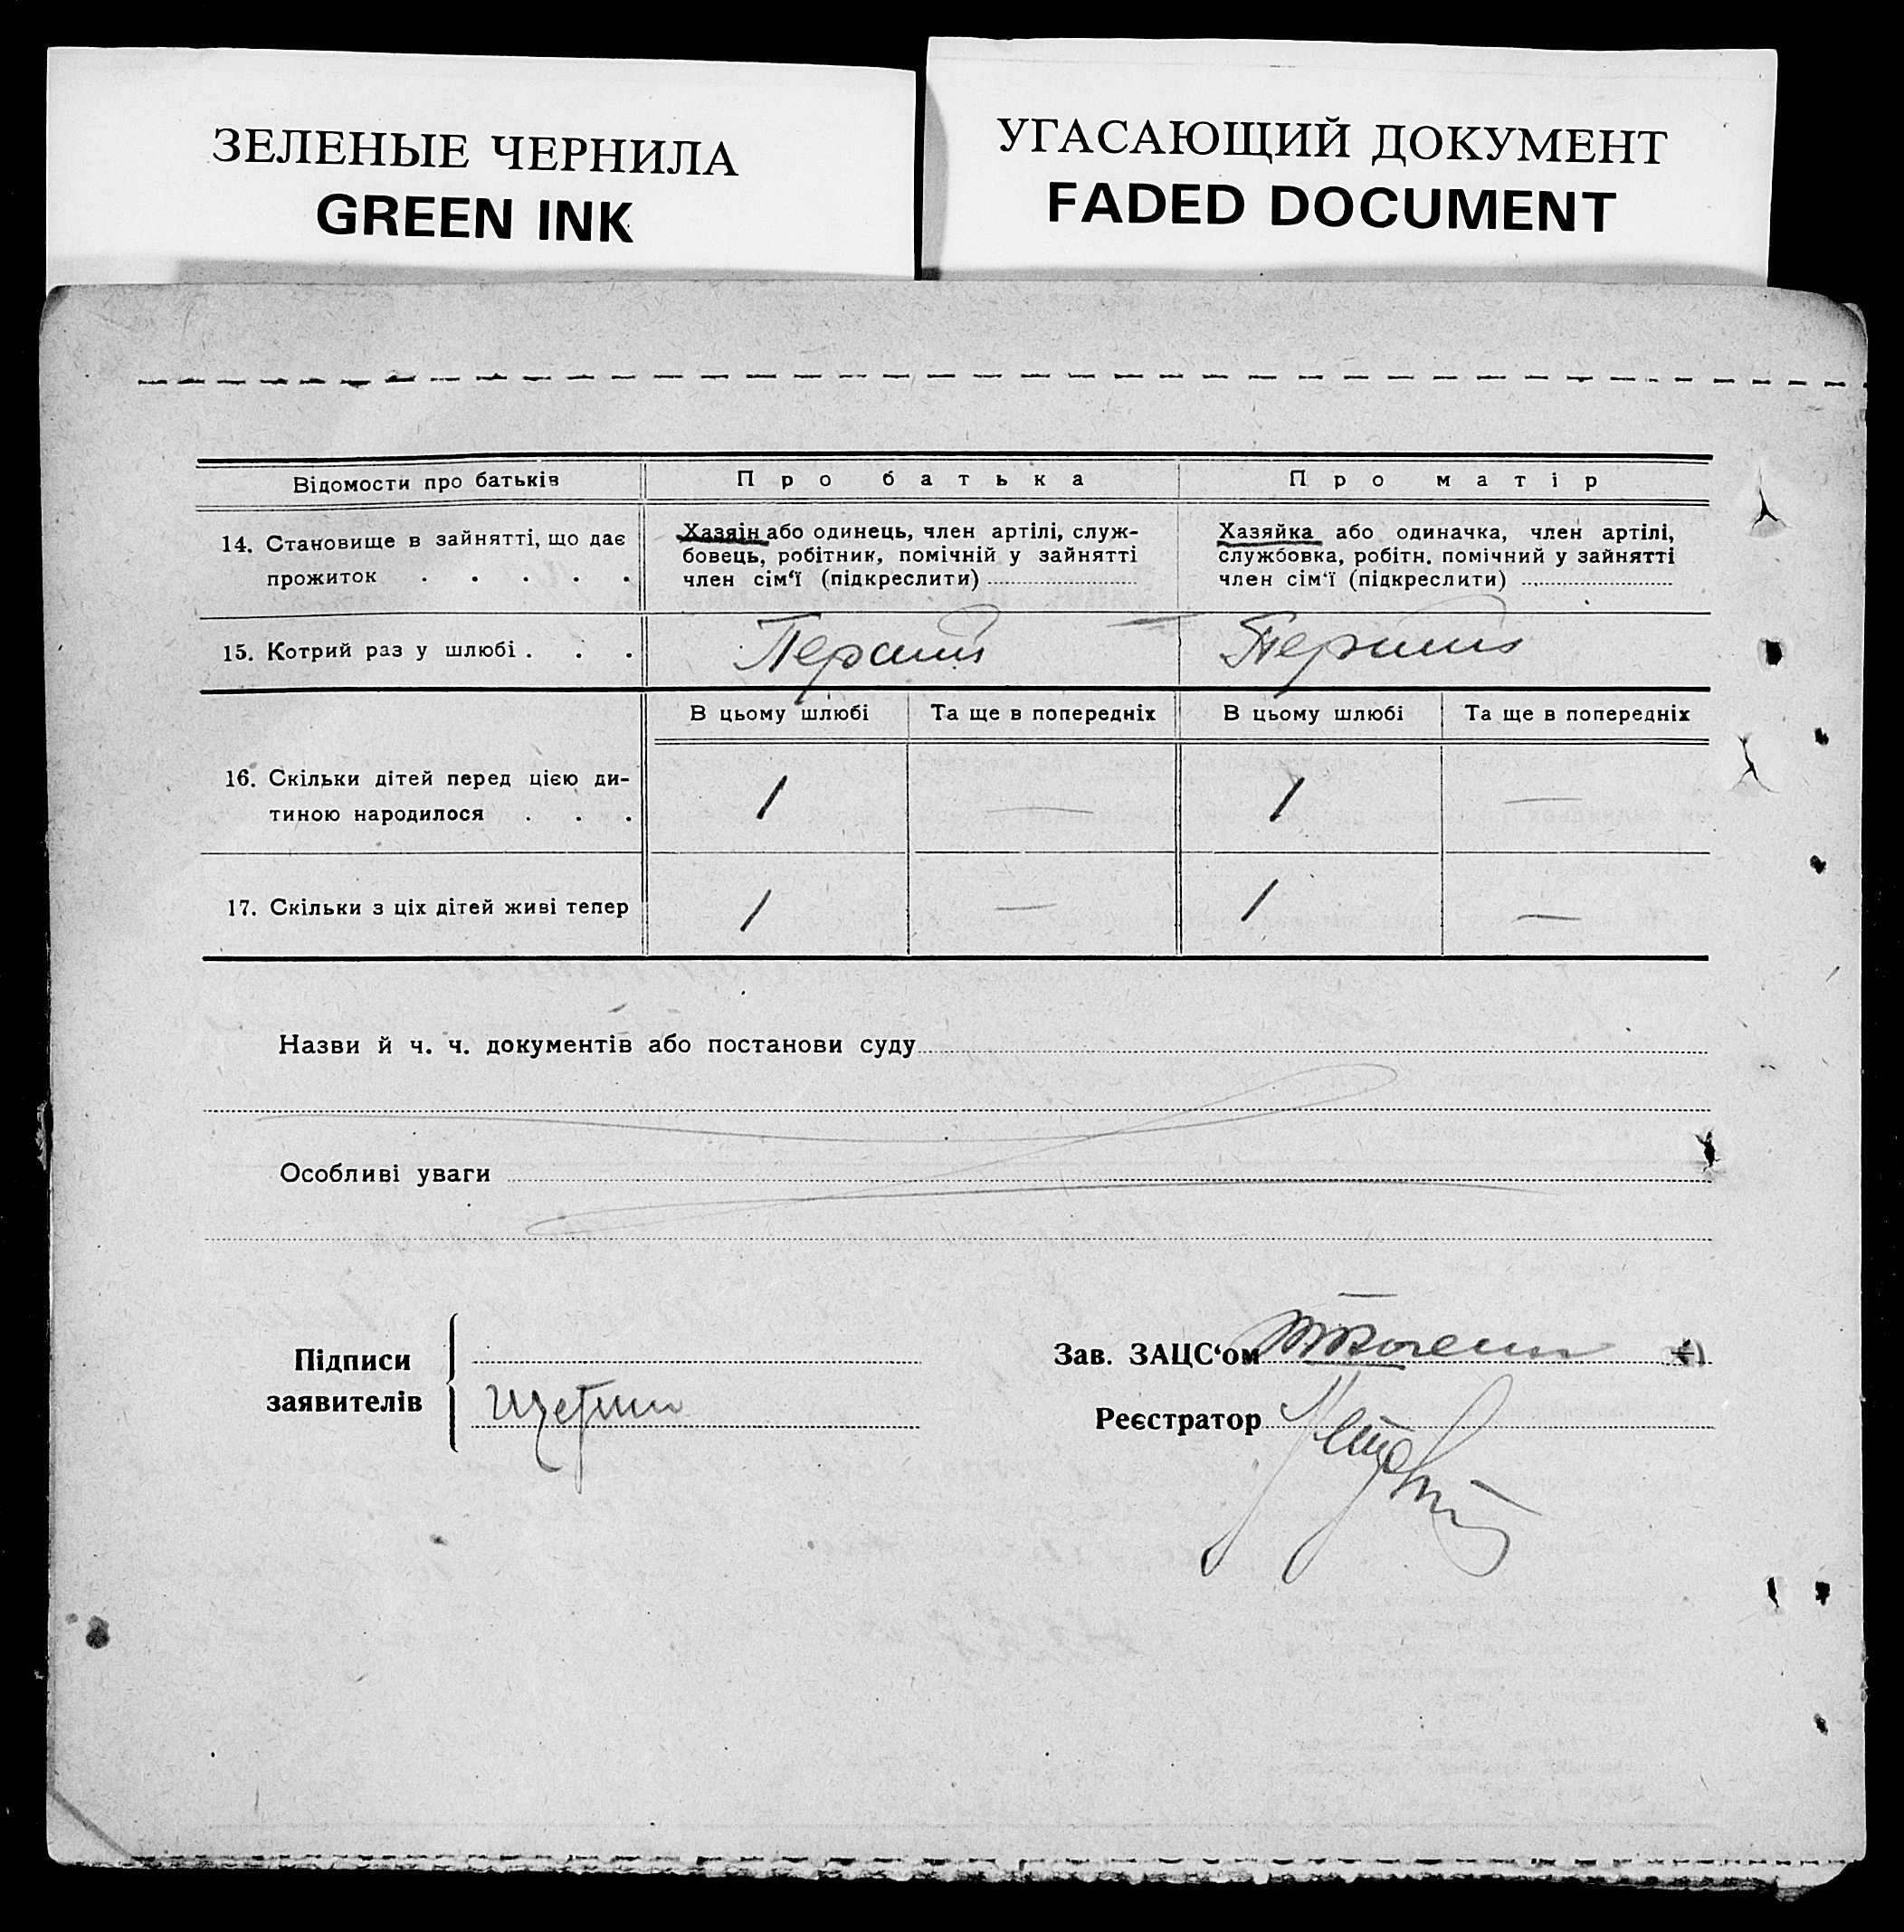 ЗЕЛЕНЫЕ ЧЕРНИЛА
GREEN INK
УГАСАЮЩИЙ ДОКУМЕНТ
FADED DOCUMENT
Відомости про батьків
Про батька
Про матір
14. Становище в зайнятті, що дає
прожиток . . . . .
Хазяїн або одинець, член артілі, служ-
бовець, робітник, помічній у зайнятті
член сім‘ї (підкреслити)
Хазяйка або одиначка, член артілі,
службовка, робітн. помічний у зайнятті
член сім‘ї (підкреслити)
15. Котрий раз у шлюбі . . .
Перший
Перший
В цьому шлюбі
Та ще в попередніх
В цьому шлюбі
Та ще в попередніх
16. Скільки дітей перед цією ди-
тиною народилося . . .
1
—
1
—
17. Скільки з ціх дітей живі тепер
1
—
1
—
Назви й ч. ч. документів або постанови суду
Особливі уваги
Підписи
заявителів
Зав. ЗАЦС‘ом
Реєстратор